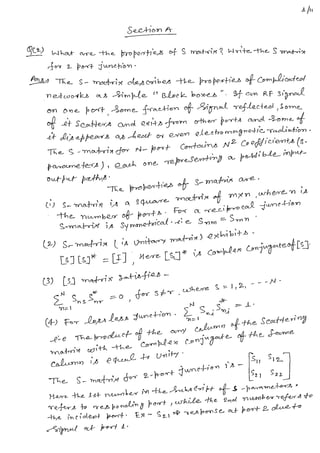 1/11
Section A
Q(2) What are the properties of S matrix? Write the S matrix
for 2 port junction.
Ans: The S-matrix describes the properties of Complicated
networks as simple "Black boxes". If an RF signal
on one port, some fraction of signal reflected, some
of it scatters and exits from other ports and some of
it disappears as heat or even electromagnetic radiation.
The S-matrix for N-port contains N² Coefficients (S-
parameters), each one representing a possible input-
output paths.
The properties of S-matrix are.
(1) S-matrix is a square matrix of mxn, where n is
the number of ports. For a reciprocal junction
S-matrix is symmetrical. i.e Snm = Smn
(2) S-matrix (is unitary matrix) exhibits.
[S] [S]* = [I], Here [S]* is Complex Conjugate of [S].
(3) [S] matrix satisfies -
Σ Sns Snr* = 0, for s≠r, where s = 1, 2, --- N.
(4) For loss less junction. Σ Snj Snj* = 1.
i.e The product of the any column of the Scattering
matrix with the Complex conjugate of the same
Column is equal to Unity.
The S-matrix for 2-port junction is - [S11 S12 S21 S22]
Here the 1st number in the subscript of S-parameters
refers to responding port, while the 2nd number refers to
the incident port. Ex - S21 ⇒ response at port 2 due to
signal at port 1.